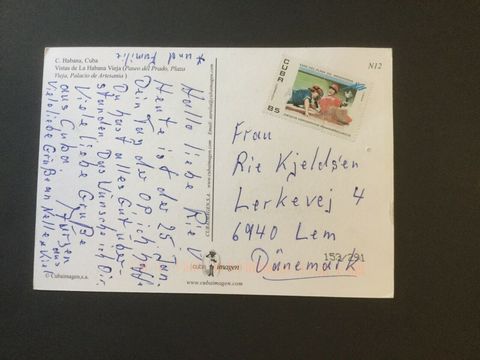 C. Habana, Cuba
Vistas de La Habana Vieja (Paseo del Prado, Plaza
Vieja, Palacio de Artesanía)
N12
CUBA
85
+ und Familie
Hallo liebe Rie
Heute ist der 25. Jan.
Dein Tag der OP, ich hoffe
Du hast alles Gut über-
standen Das Wunsche ich Dir.
Viele liebe Grüße
aus Cuba Jürgen
Viele liebe Grüße an Nelle + Kiel
CUBAIMAGEN, S.A.
www.cubaimagen.com
cuba imagen
www.cubaimagen.com
© Cubaimagen, s.a.
Frau
Rie Kjeldsen
Lerkevej 4
6940 Lem
Dänemark
153/291